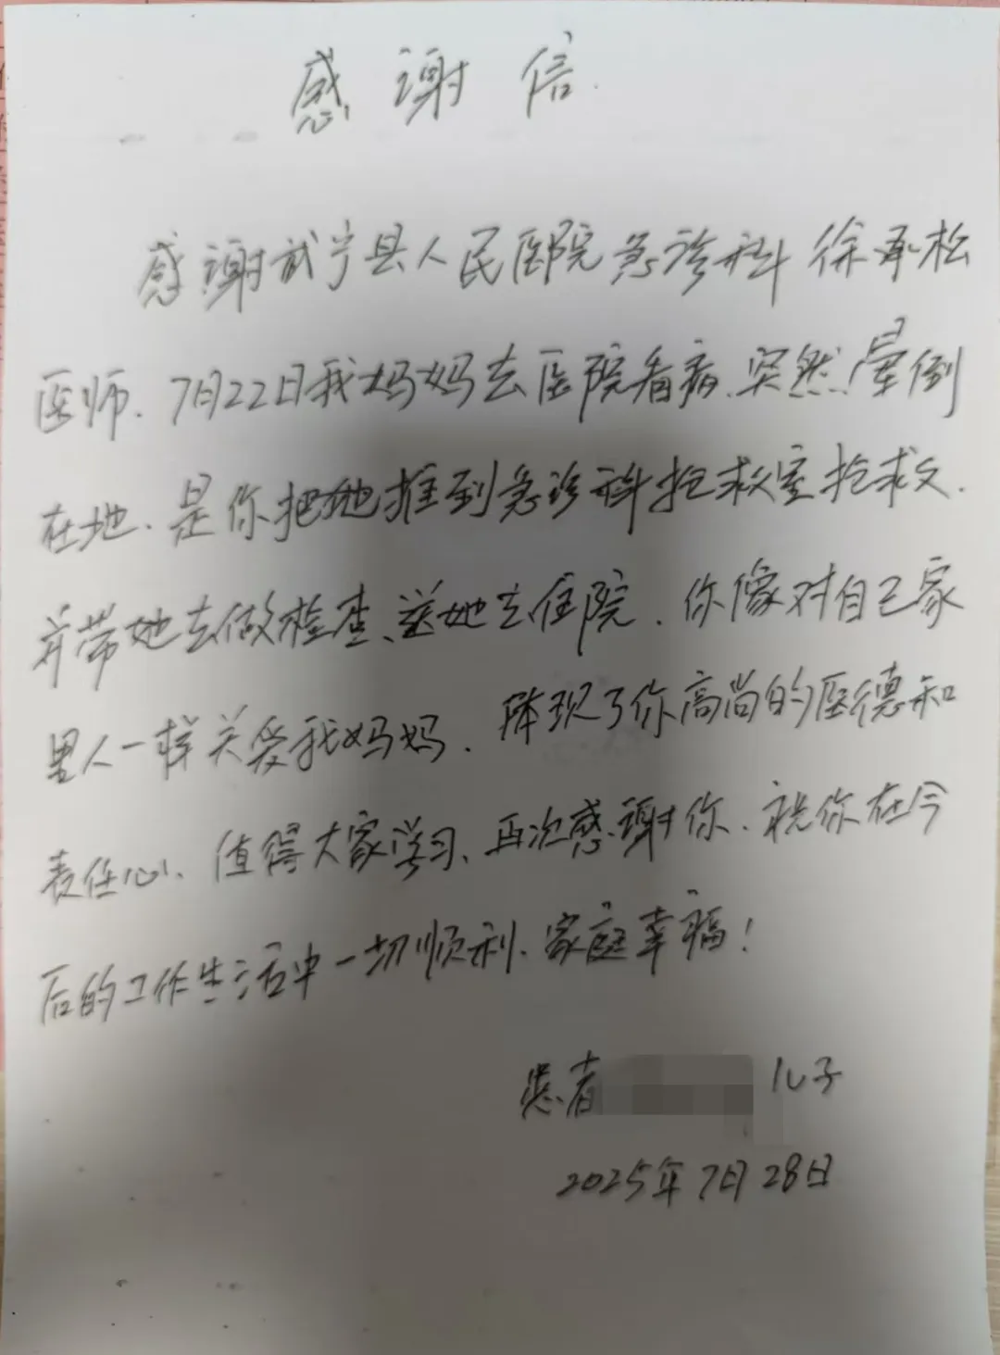 感谢信.
感谢武宁县人民医院急诊科徐承松
医师.7月22日我妈妈去医院看病.突然晕倒
在地.是你把她推到急诊科抢救室抢救.
并带她去做检查、送她去住院.你像对自己家
里人一样关爱我妈妈.体现了你高尚的医德和
责任心.值得大家学习、再次感谢你.祝你在今
后的工作生活中一切顺利.家庭幸福!
患者 儿子
2025年7月28日